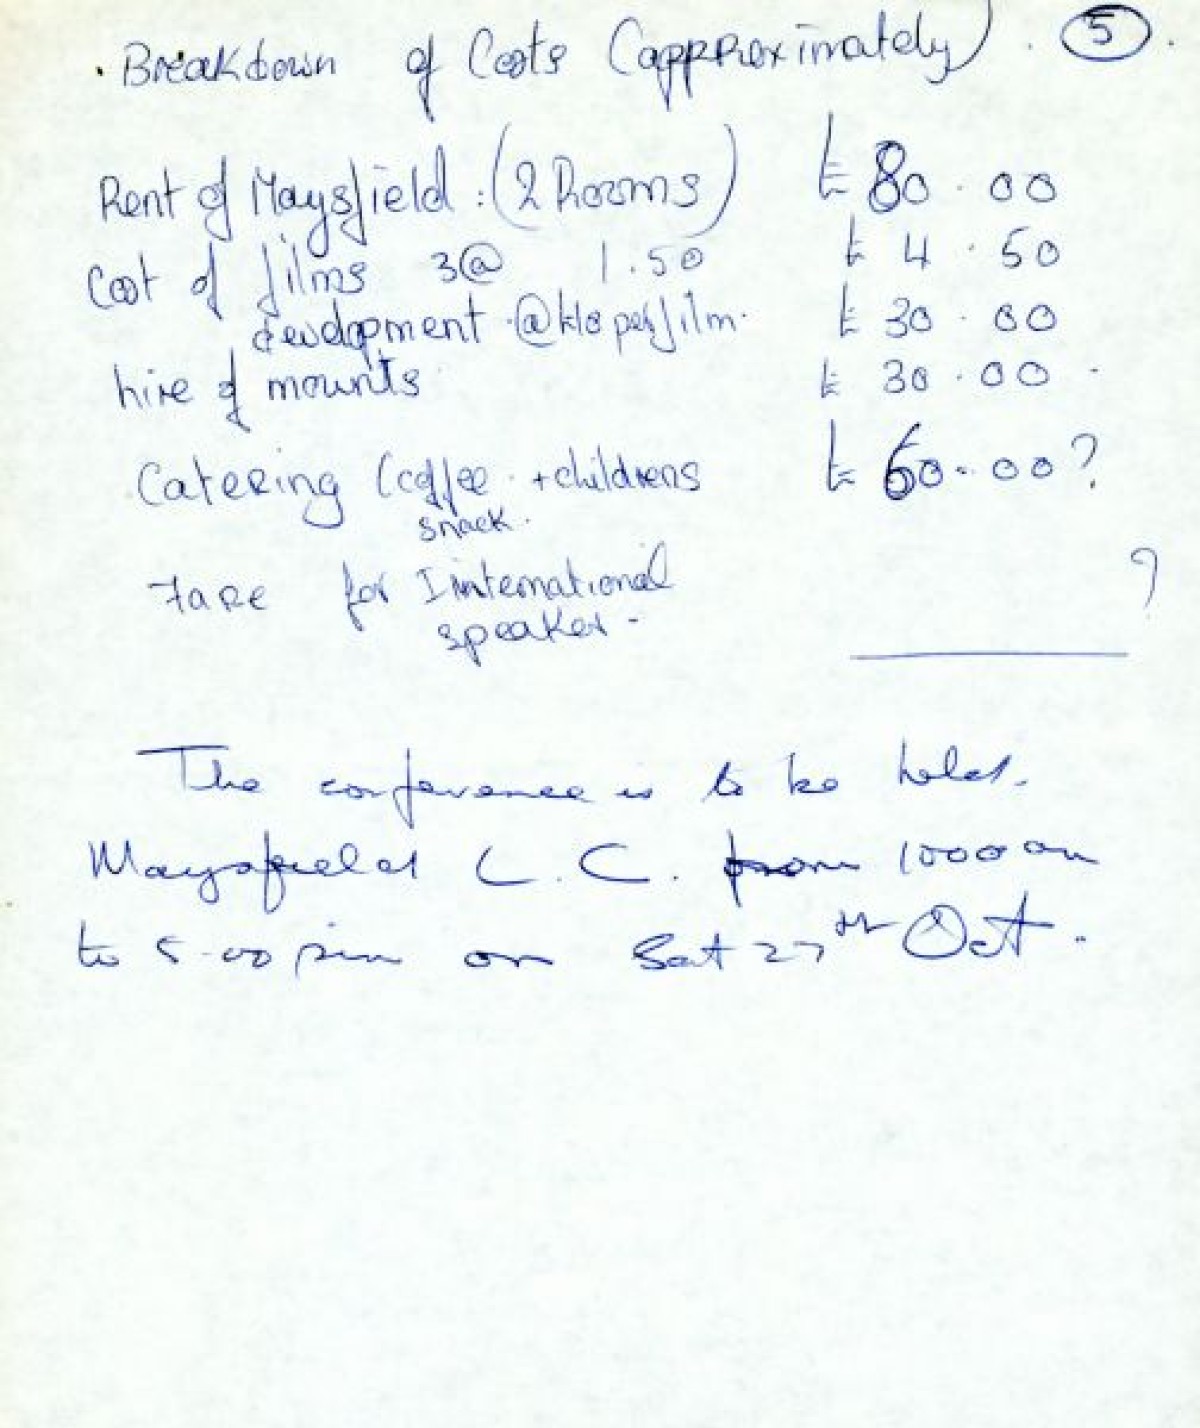 . Breakdown of Costs (approximately) . 5 .
Rent of Maysfield : (2 Rooms) £ 80.00
Cost of films 3@ 1.50 £ 4.50
development @ £10 per film. £ 30.00
hire of mounts £ 30.00 .
Catering (coffee + childrens £ 60.00?
snack.
Fare for International ?
speaker -
The conference is to be held.
Maysfield L.C. from 1000 am
to 5.00 pm on Sat 27th Oct.